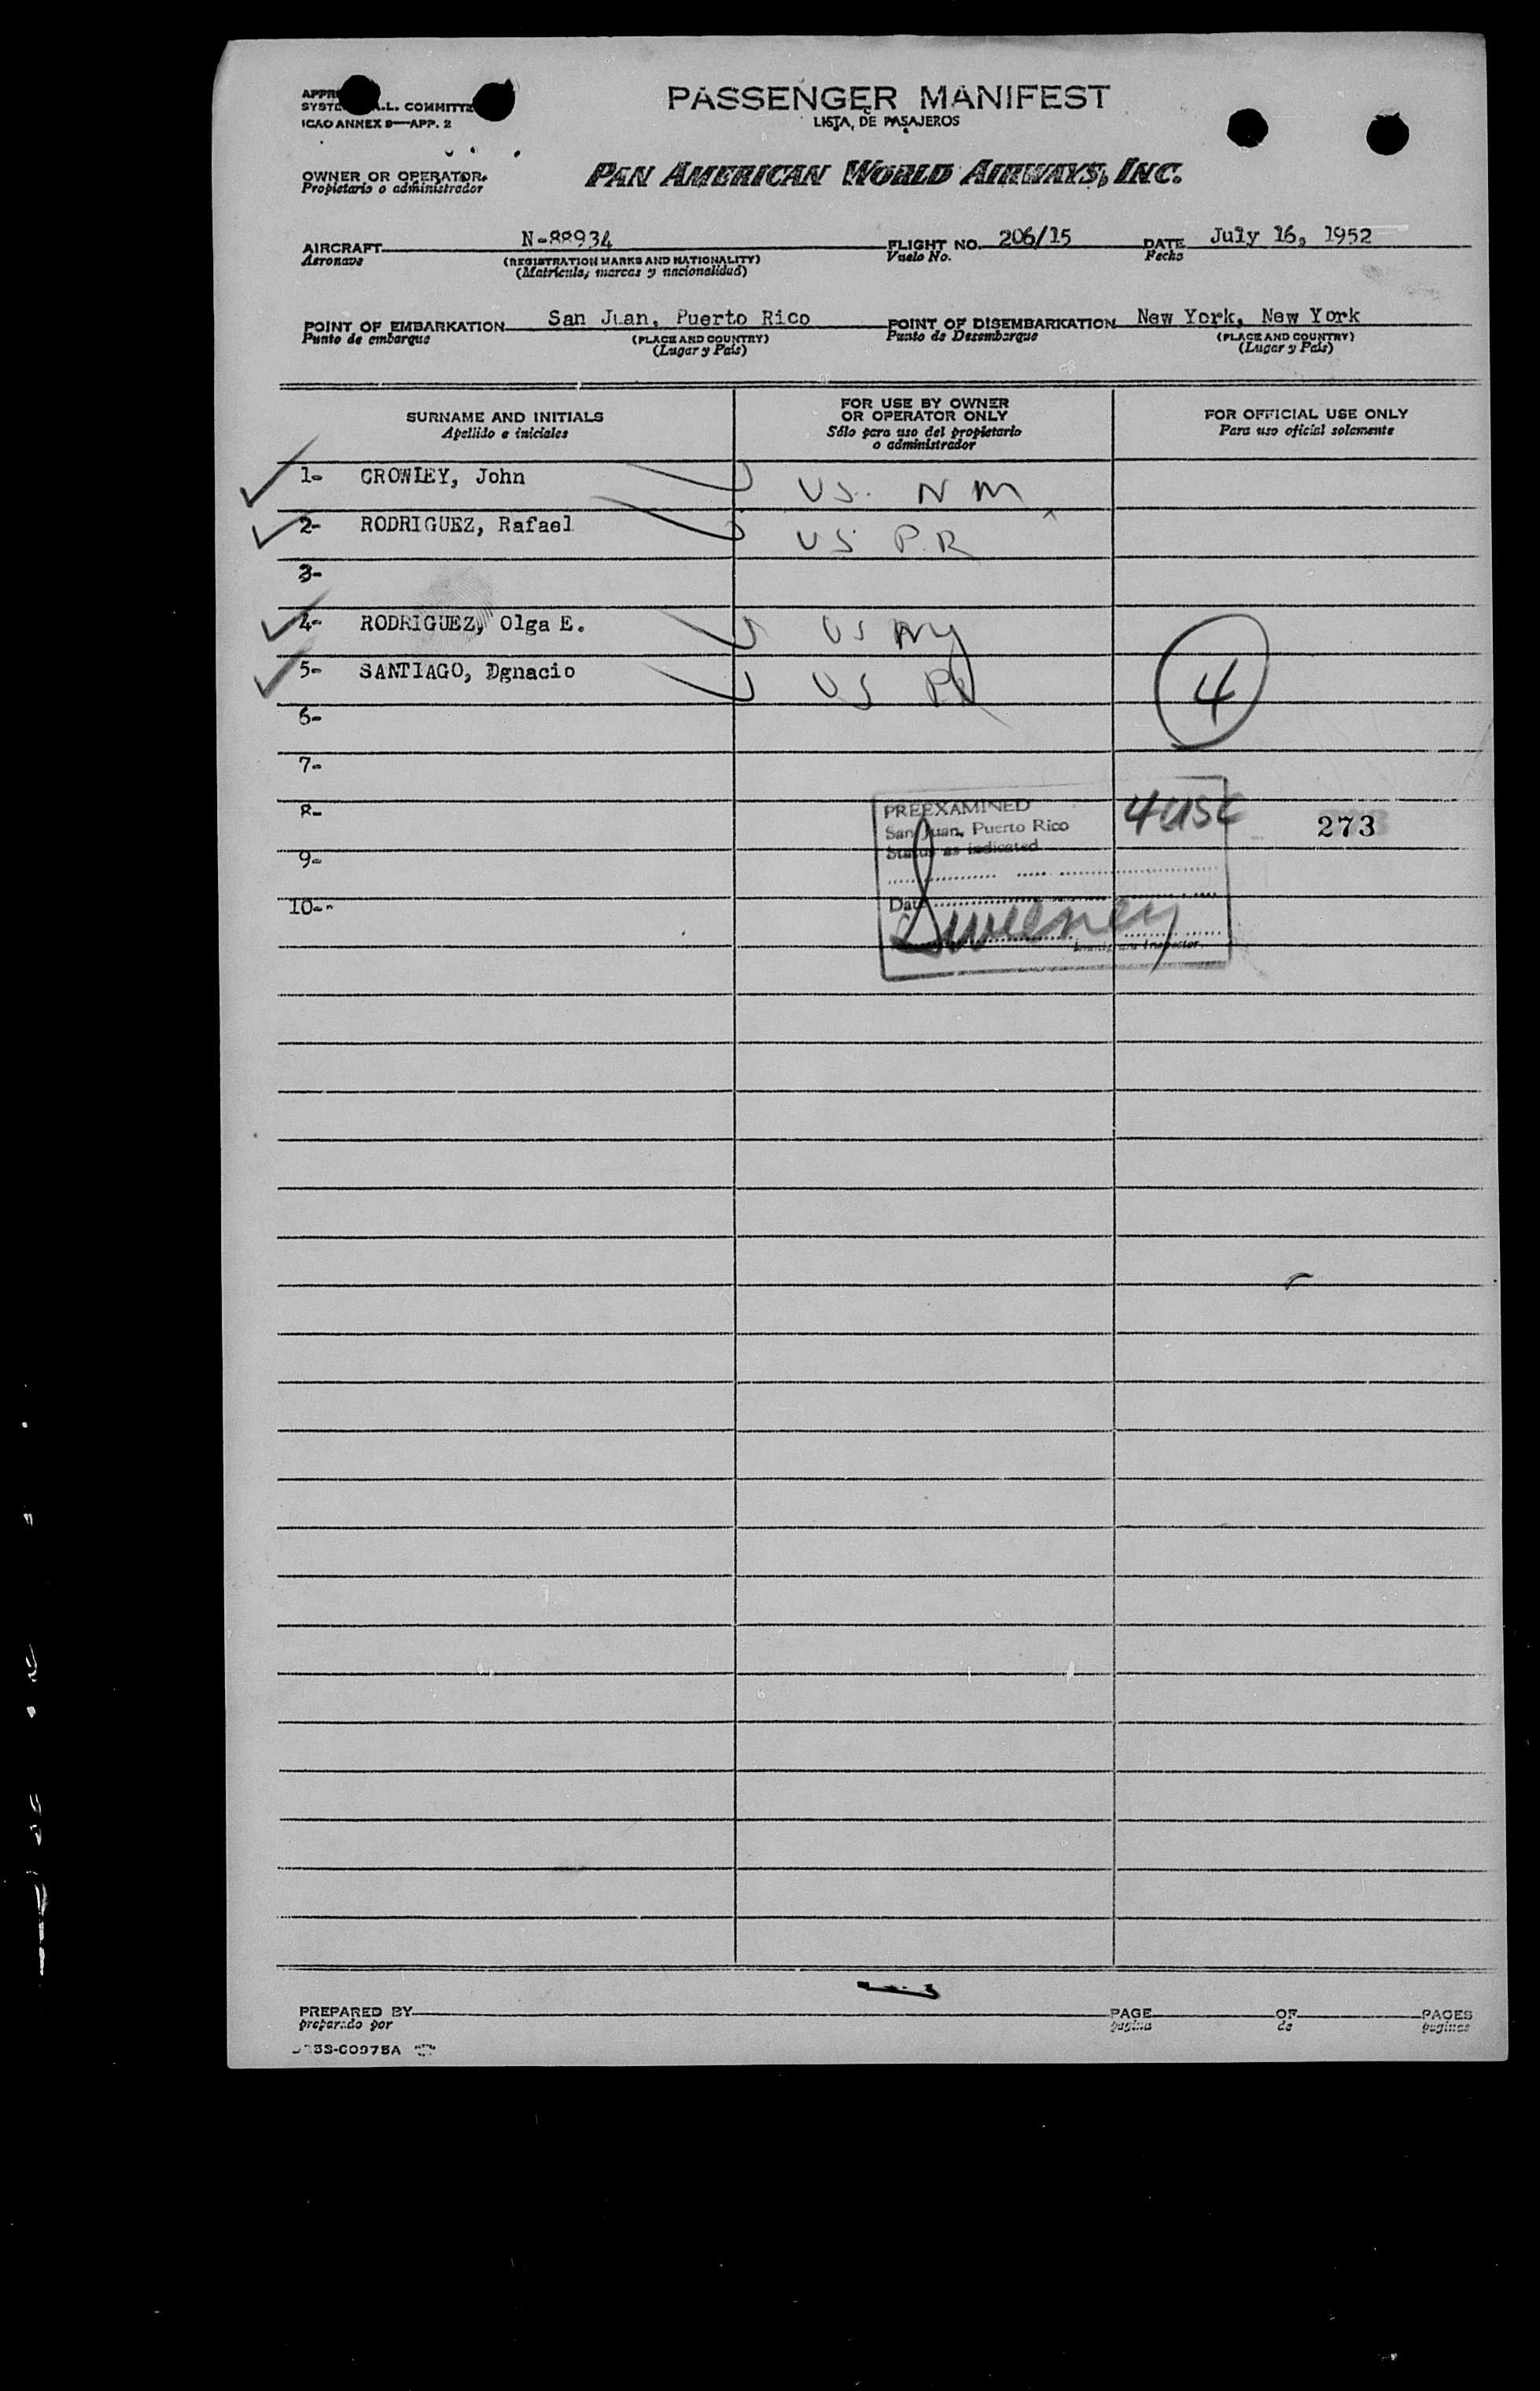 PASSENGER MANIFEST
LISTA DE PASAJEROS
A.L. COMMITTE
ICAO ANNEX 9—APP. 2
OWNER OR OPERATOR
Propietario o administrador
PAN AMERICAN WORLD AIRWAYS, INC.
AIRCRAFT N-88934 FLIGHT NO. 206/15 DATE July 16, 1952
Aeronave (REGISTRATION MARKS AND NATIONALITY) Vuelo No. Fecha
(Matrícula, marcas y nacionalidad)
POINT OF EMBARKATION San Juan, Puerto Rico POINT OF DISEMBARKATION New York, New York
Punto de embarque (PLACE AND COUNTRY) Punto de Desembarque (PLACE AND COUNTRY)
(Lugar y País) (Lugar y País)
SURNAME AND INITIALS
Apellido e iniciales
FOR USE BY OWNER
OR OPERATOR ONLY
Sólo para uso del propietario
o administrador
FOR OFFICIAL USE ONLY
Para uso oficial solamente
1- CROWLEY, John US. NM
2- RODRIGUEZ, Rafael US P.R
3-
4- RODRIGUEZ, Olga E. US NY
5- SANTIAGO, Dgnacio US PR
4
6-
7-
8-
9-
10-
PREEXAMINED
San Juan, Puerto Rico
Status as indicated
4 USC
273
Date
Sweeney
Inspector.
PREPARED BY PAGE OF PAGES
preparado por pagina de paginas